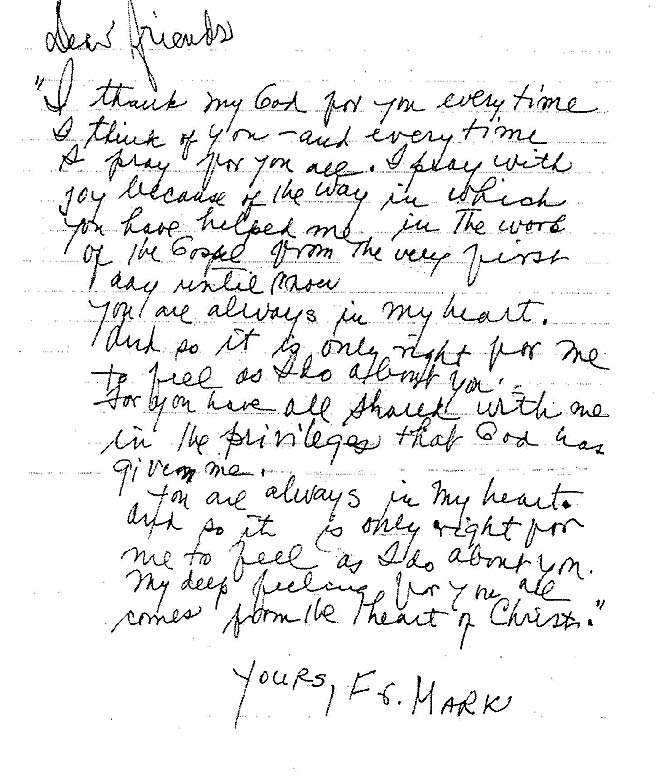 Dear friends
"I thank my God for you every time
I think of you - and every time
I pray for you all. I pray with
joy because of the way in which
you have helped me in the work
of the Gospel from the very first
day until now
You are always in my heart.
And so it is only right for me
to feel as I do about you.
For you have all shared with me
in the privileges that God has
given me.
You are always in my heart.
And so it is only right for
me to feel as I do about you.
My deep feeling for you all
comes from the heart of Christ."
YOURS, Fr. MARK